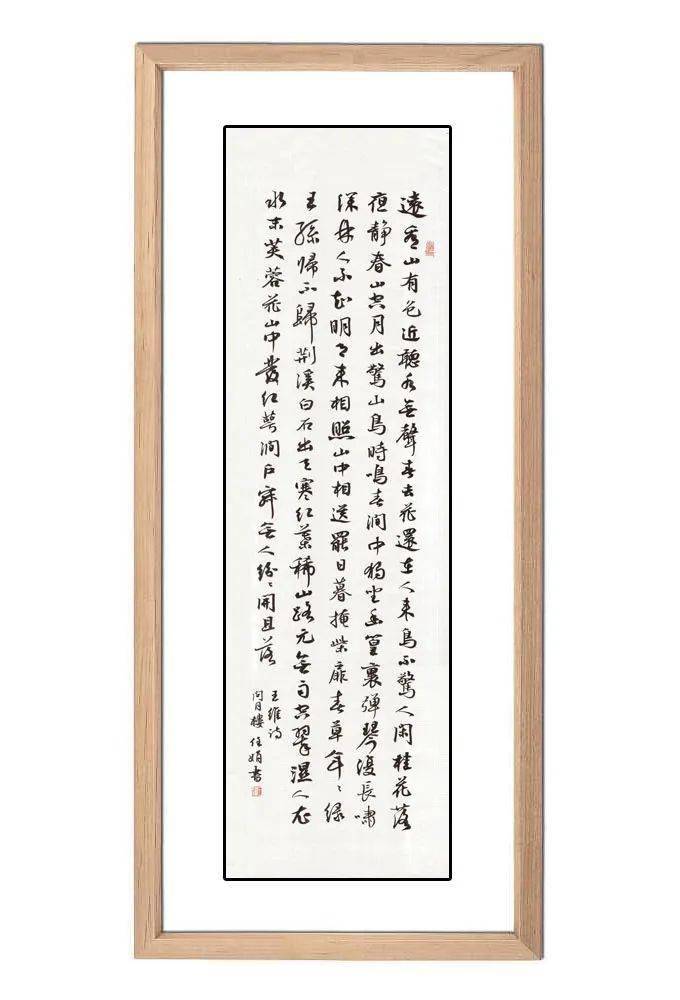 遠看山有色近聽水無聲春去花還在人來鳥不驚人閑桂花落
夜靜春山空月出驚山鳥時鳴春澗中獨坐幽篁裏彈琴復長嘯
深林人不知明月來相照山中相送罷日暮掩柴扉春草年〻綠
王孫歸不歸荆溪白石出天寒紅葉稀山路元無雨空翠濕人衣
木末芙蓉花山中發紅萼澗户寂無人紛〻開且落
王維詩
問月樓任娟書